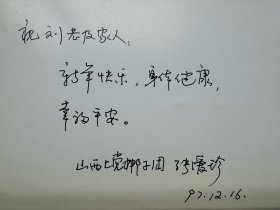 祝刘老及家人：
新年快乐，身体健康，
幸福平安。
山西上党梆子团 张爱珍
97.12.16.